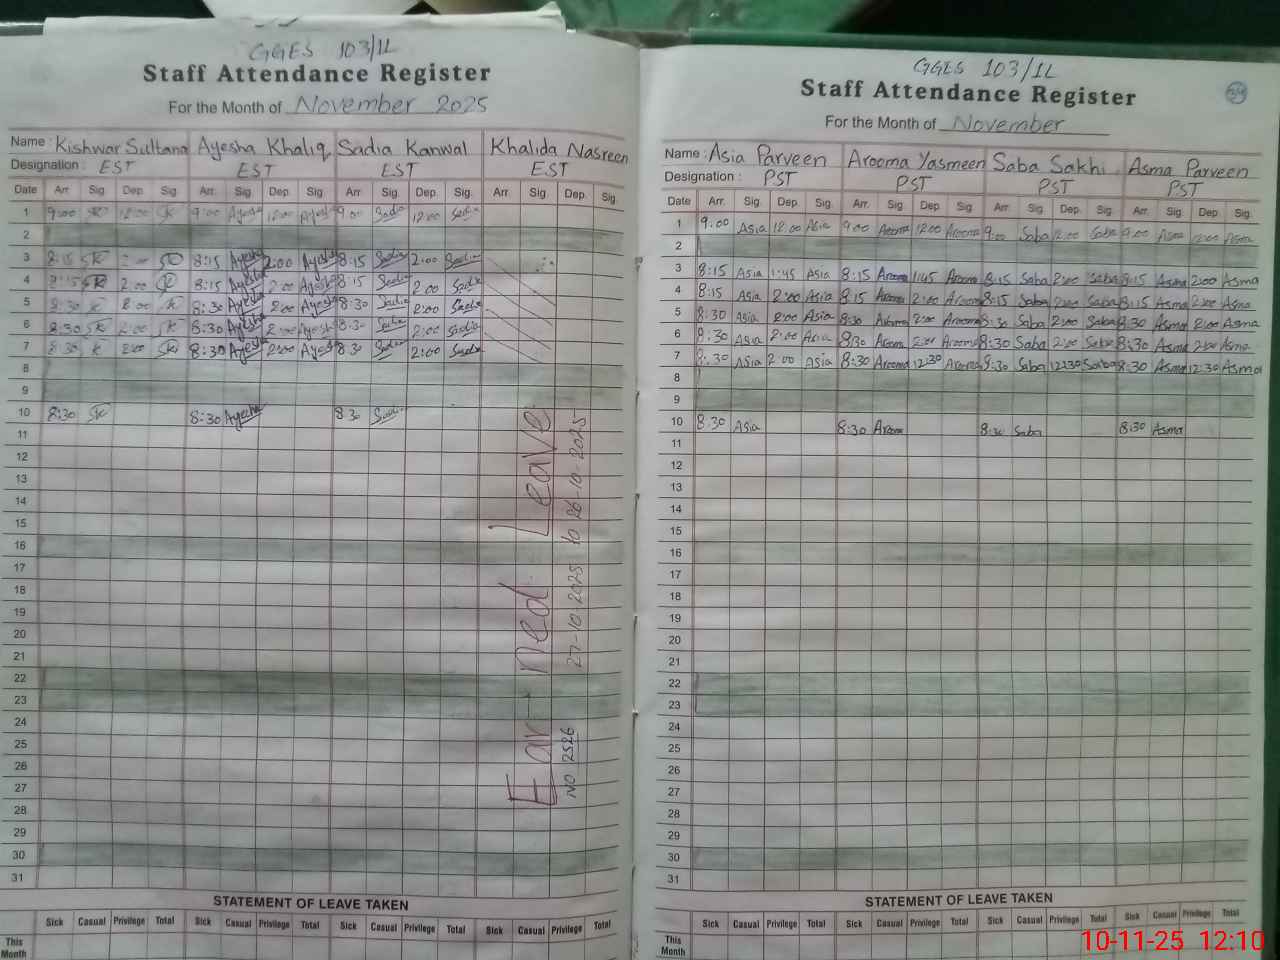 GGES 103/1L
Staff Attendance Register
For the Month of November 2025
Name : Kishwar Sultana Ayesha Khaliq Sadia Kanwal Khalida Nasreen
Designation : EST EST EST EST
Date Arr. Sig. Dep. Sig. Arr. Sig. Dep. Sig. Arr. Sig. Dep. Sig. Arr. Sig. Dep. Sig.
1 9:00 SK 12:00 SK 9:00 Ayesha 12:00 Ayesha 9:00 Sadia 12:00 Sadia
2
3 8:15 SK 2:00 SK 8:15 Ayesha 2:00 Ayesha 8:15 Sadia 2:00 Sadia
4 8:15 SK 2:00 SK 8:15 Ayesha 2:00 Ayesha 8:15 Sadia 2:00 Sadia
5 8:30 SK 2:00 SK 8:30 Ayesha 2:00 Ayesha 8:30 Sadia 2:00 Sadia
6 8:30 SK 2:00 SK 8:30 Ayesha 2:00 Ayesha 8:30 Sadia 2:00 Sadia
7 8:30 SK 2:00 SK 8:30 Ayesha 2:00 Ayesha 8:30 Sadia 2:00 Sadia
8
9
10 8:30 SK 8:30 Ayesha 8:30 Sadia
11
12
13
14
15
16
17
18
19
20
21
22
23
24
25
26
27
28
29
30
31
Ear-ned Leave
NO 2526 27-10-2025 to 26-10-2025
STATEMENT OF LEAVE TAKEN
Sick Casual Privilege Total Sick Casual Privilege Total Sick Casual Privilege Total Sick Casual Privilege Total
This Month
GGES 103/1L
Staff Attendance Register
For the Month of November
Name : Asia Parveen Arooma Yasmeen Saba Sakhi Asma Parveen
Designation : PST PST PST PST
Date Arr. Sig. Dep. Sig. Arr. Sig. Dep. Sig. Arr. Sig. Dep. Sig. Arr. Sig. Dep. Sig.
1 9:00 Asia 12:00 Asia 9:00 Arooma 12:00 Arooma 9:00 Saba 12:00 Saba 9:00 Asma 12:00 Asma
2
3 8:15 Asia 1:45 Asia 8:15 Arooma 1:45 Arooma 8:15 Saba 2:00 Saba 8:15 Asma 2:00 Asma
4 8:15 Asia 2:00 Asia 8:15 Arooma 2:00 Arooma 8:15 Saba 2:00 Saba 8:15 Asma 2:00 Asma
5 8:30 Asia 2:00 Asia 8:30 Arooma 2:00 Arooma 8:30 Saba 2:00 Saba 8:30 Asma 2:00 Asma
6 8:30 Asia 2:00 Asia 8:30 Arooma 2:00 Arooma 8:30 Saba 2:00 Saba 8:30 Asma 2:00 Asma
7 8:30 Asia 2:00 Asia 8:30 Arooma 12:30 Arooma 8:30 Saba 12:30 Saba 8:30 Asma 12:30 Asma
8
9
10 8:30 Asia 8:30 Arooma 8:30 Saba 8:30 Asma
11
12
13
14
15
16
17
18
19
20
21
22
23
24
25
26
27
28
29
30
31
STATEMENT OF LEAVE TAKEN
Sick Casual Privilege Total Sick Casual Privilege Total Sick Casual Privilege Total Sick Casual Privilege Total
This Month
10-11-25 12:10